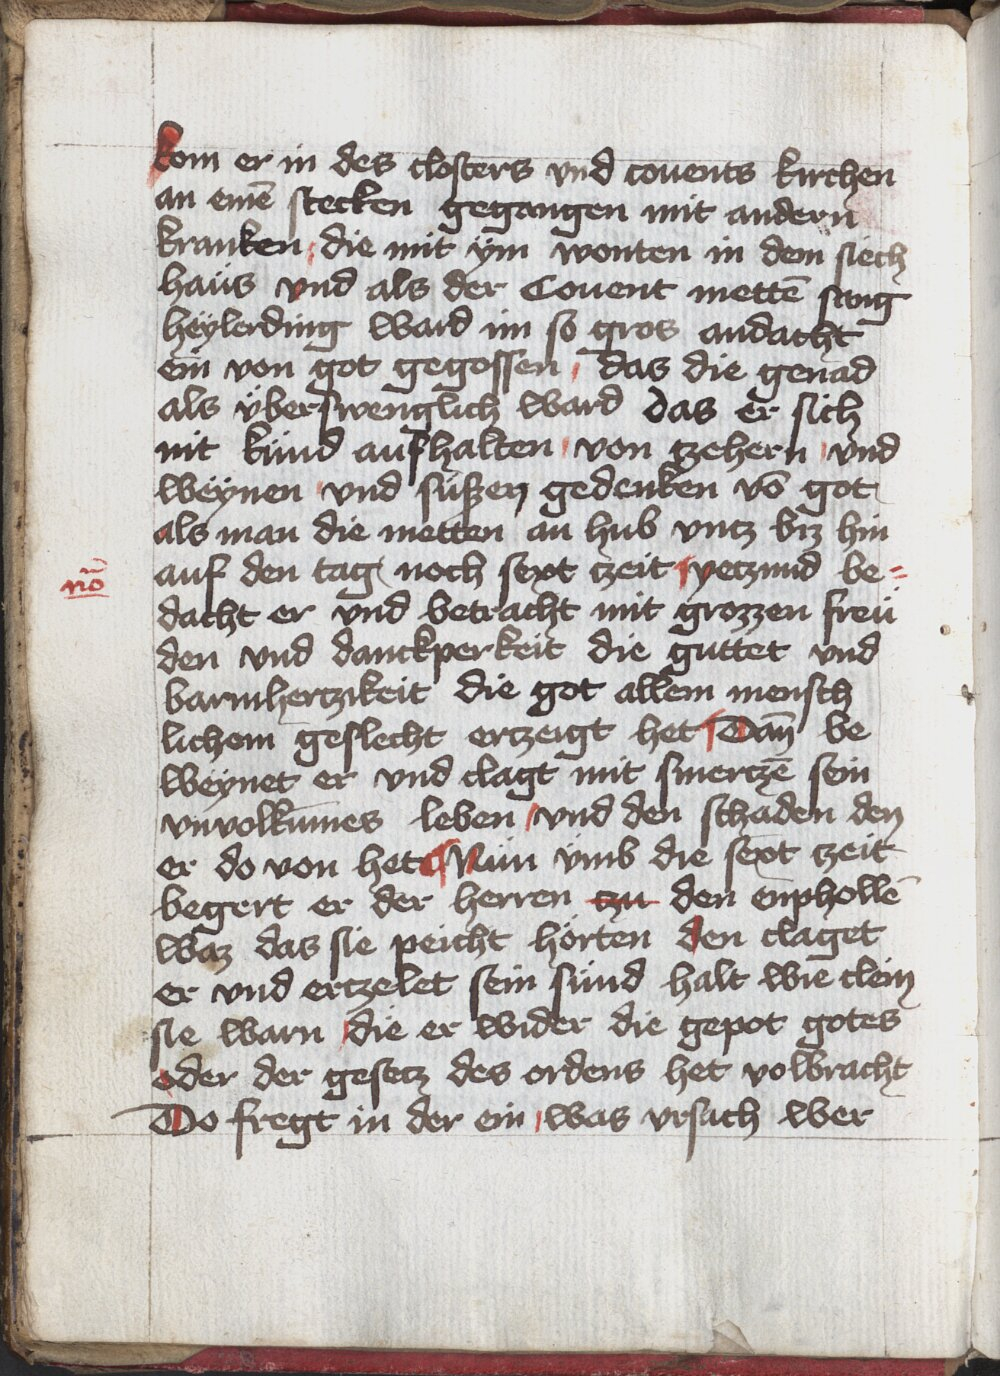 kom er in des closters vnd couents kirchen
an einē stecken gegangen mit andern
kranken die mit ÿm wonten in dem siech
haüs vnd als der Couent mettē sang
heÿlerding ward im so gros andacht
ein von got gegossen das die genad
als ÿberswenglich ward das er sich
nit künd aufhalten von tzehern vnd
weÿnen vnd süßen gedenken vō got
als man die metten an hub vntz biz hin
auf den tag noch sext tzeit yetzund be=
nō
dacht er vnd betracht mit grozzen freü
den vnd danckperkeit die guttet vnd
barmhertzikeit die got allem mensch
lichem geslecht ertzeigt het Dan̄ be
weÿnet er vnd clagt mit smertzē sein
vnuolkūmes leben vnd den schaden den
er do von het Nün ümb die sext tzeit
begert er der herren tzu den enphollē
waz das sie peicht hörten den claget
er vnd ertzelet sein sünd halt wie clein
sie warn die er wider die gepot gotes
oder der gesetz des ordens het volbracht
Do fregt in der ein was vrsach wer